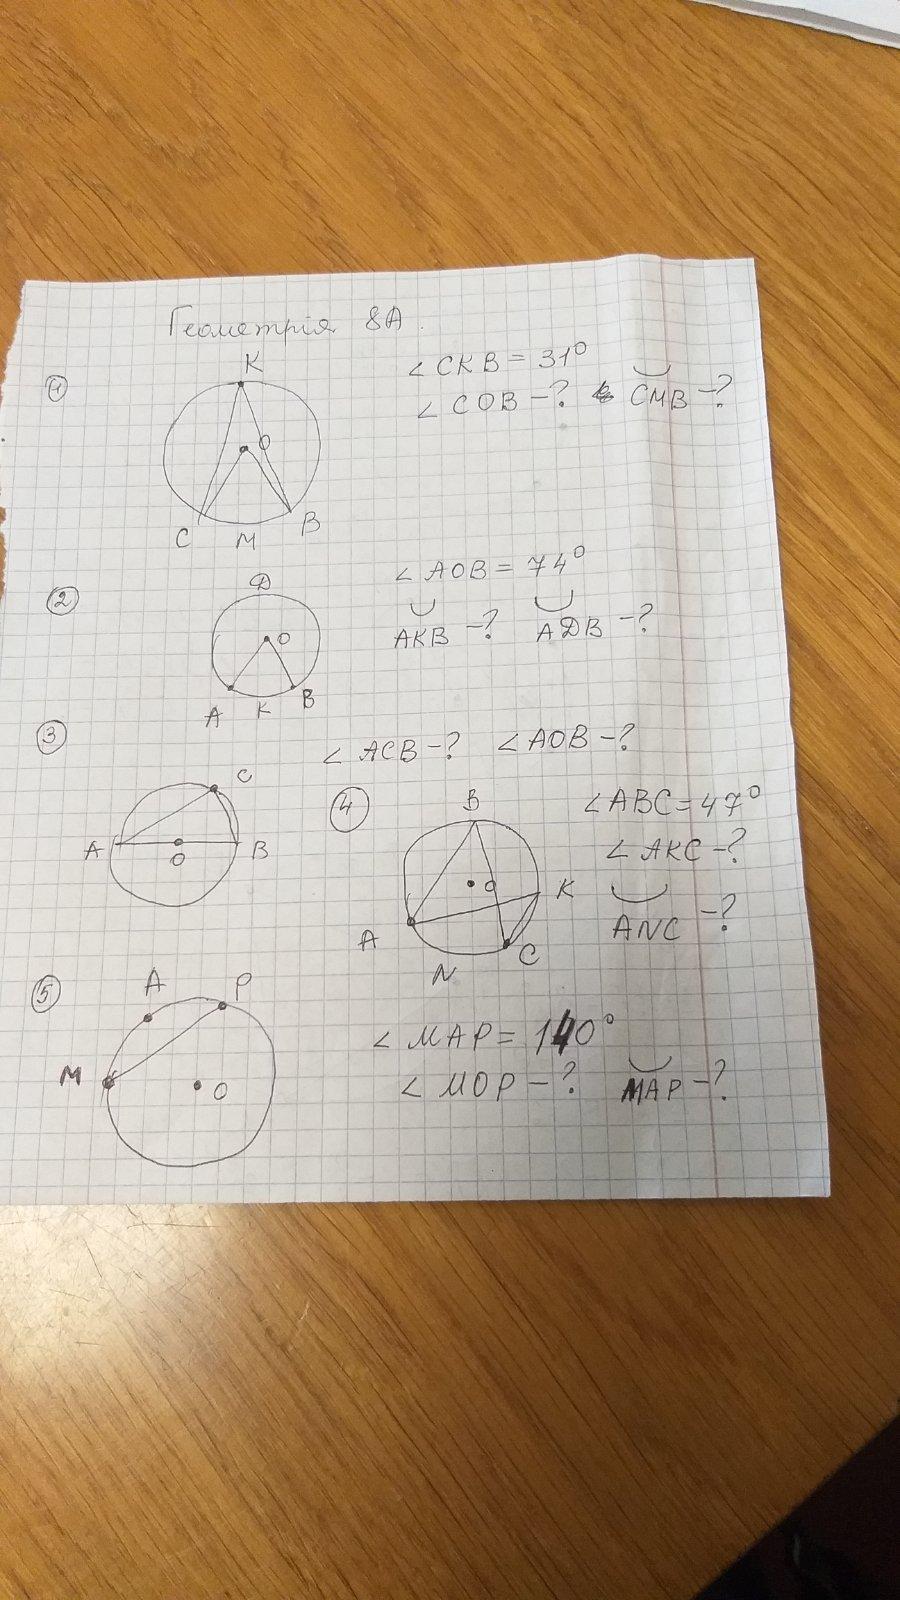 Геометрія 8А.
1
K
O
C M B
∠CKB = 31°
∠COB - ? ◡CMB - ?
2
D
O
A K B
∠AOB = 74°
◡AKB - ? ◡ADB - ?
3
∠ACB - ? ∠AOB - ?
C
A O B
4
B
O
K
A
N C
∠ABC = 47°
∠AKC - ?
◡ANC - ?
5
A P
M
O
∠MAP = 110°
∠MOP - ? ◡MAP - ?